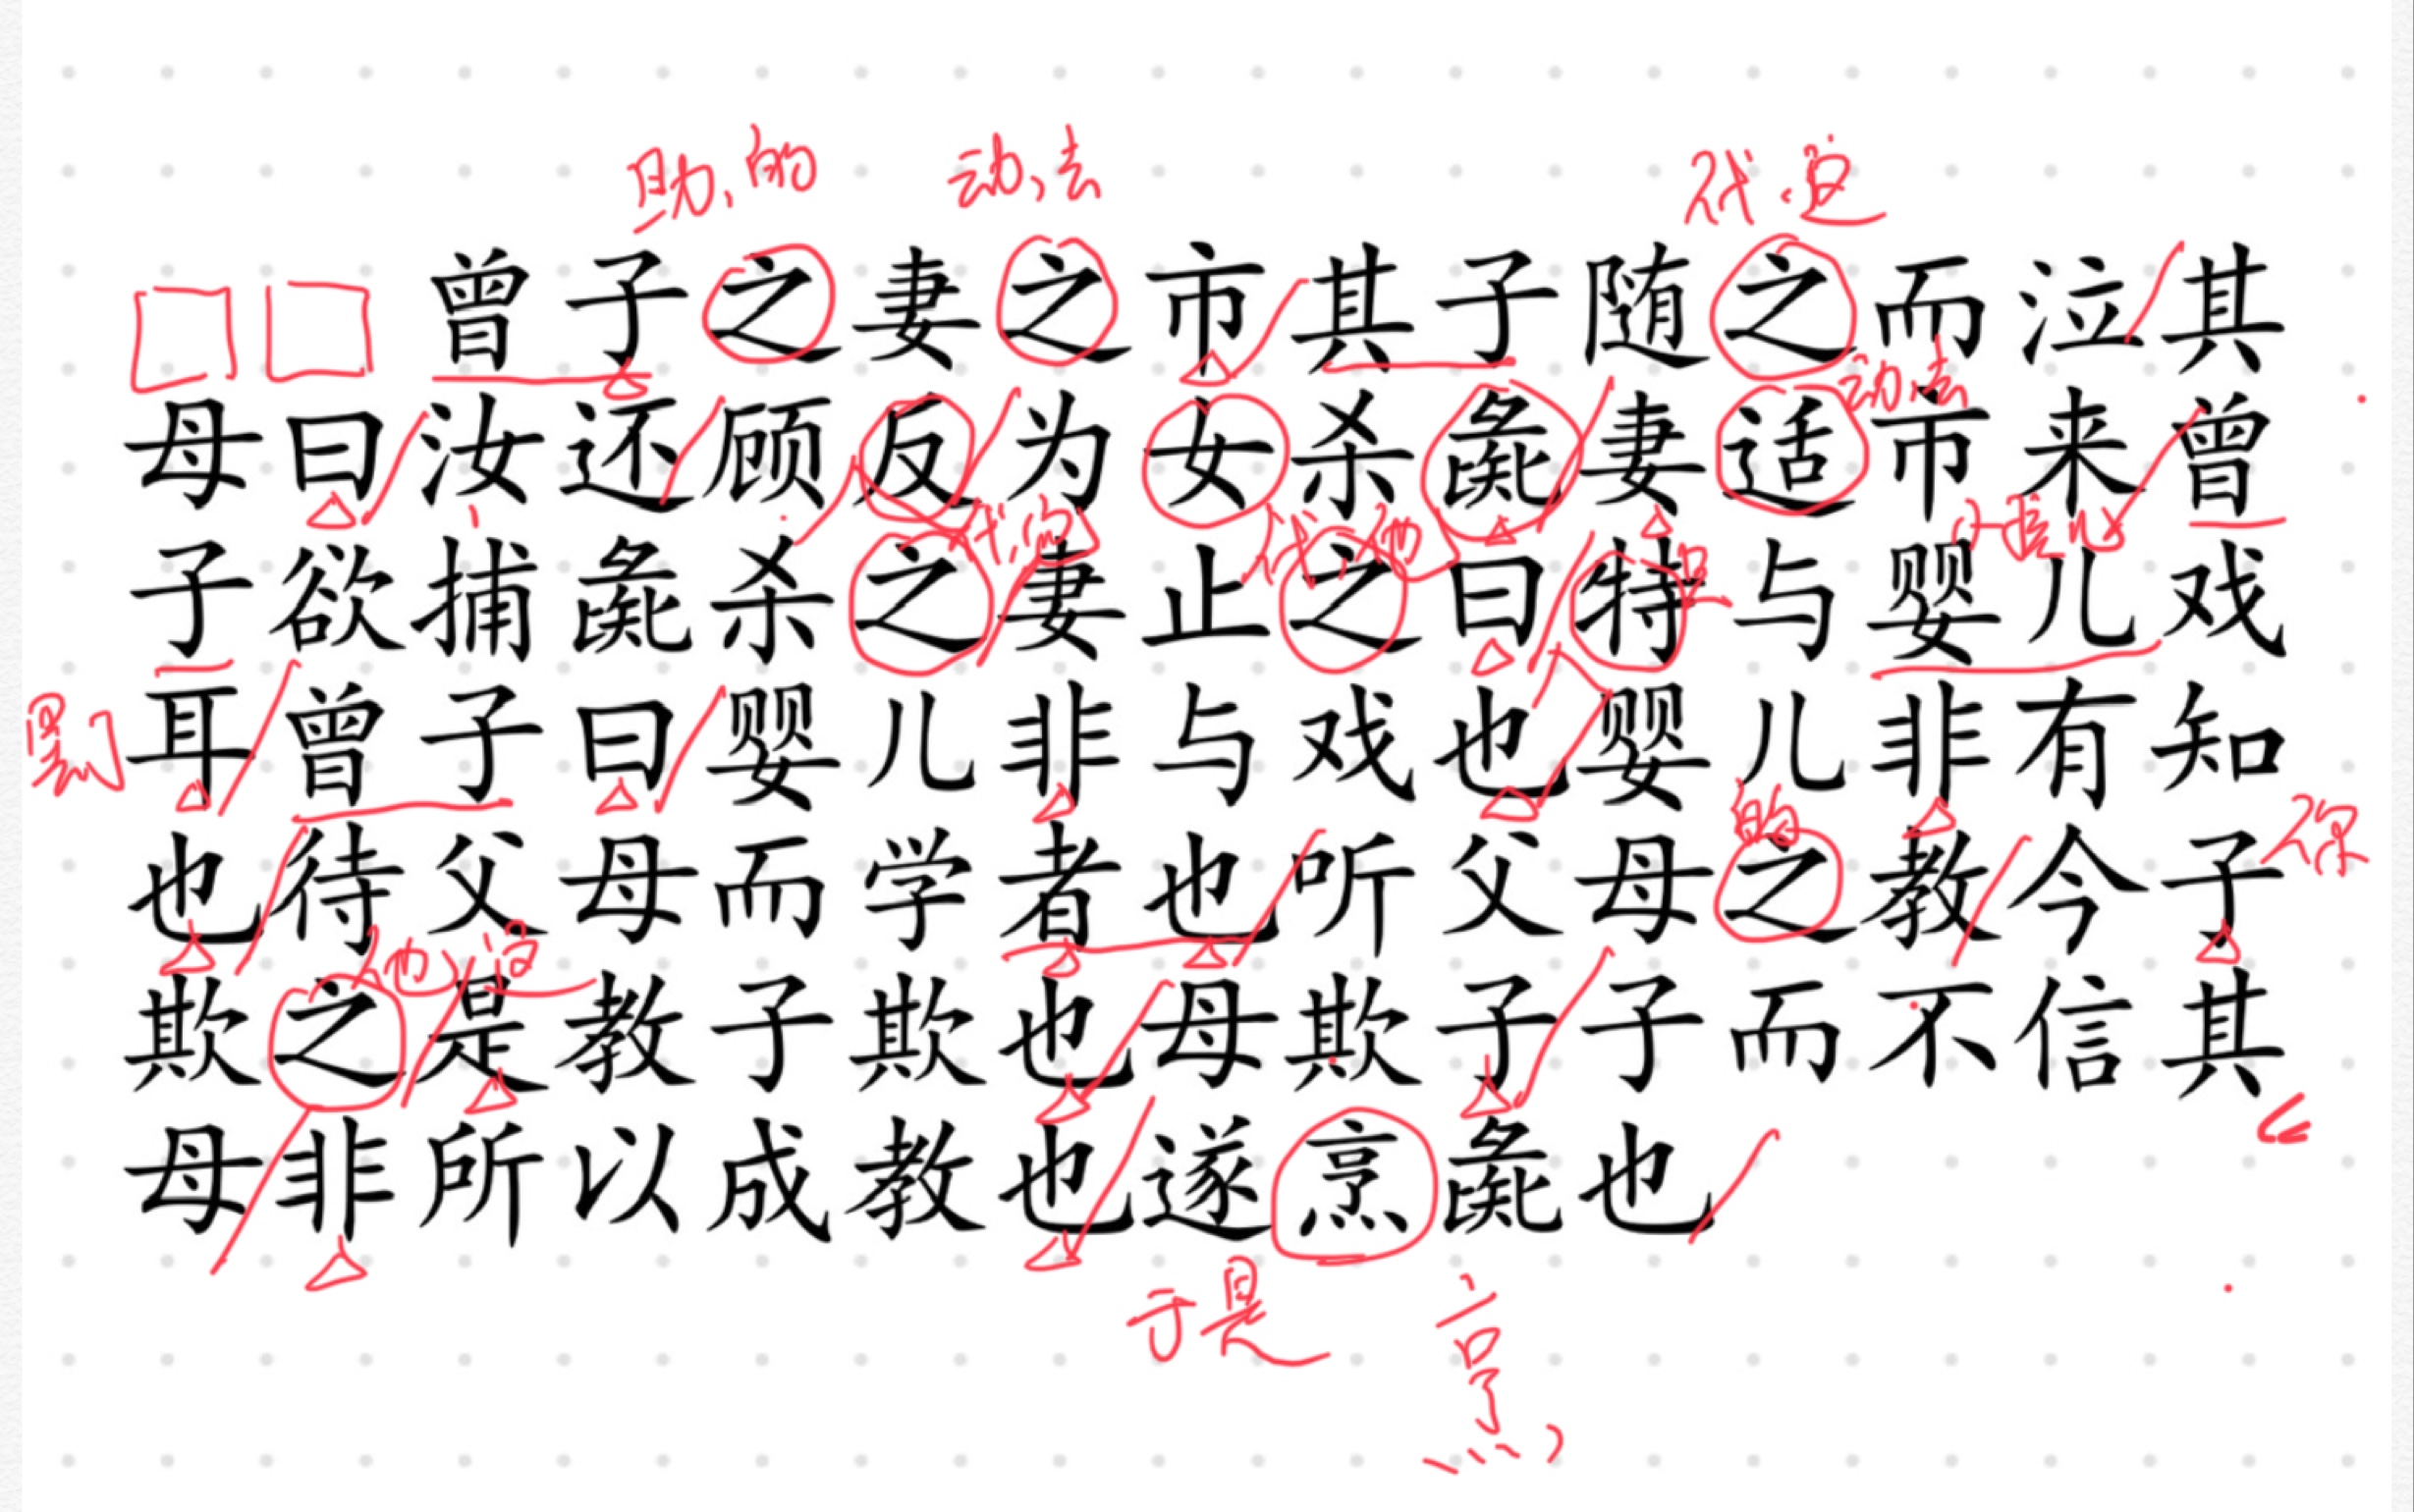 助、的 动、去 代、这
曾子之妻之市其子随之而泣其
动、去
母曰汝还顾反为女杀彘妻适市来曾
代、他 小孩儿
子欲捕彘杀之妻止之曰特与婴儿戏
耳曾子曰婴儿非与戏也婴儿非有知
的 你
也待父母而学者也听父母之教今子
他 这
欺之是教子欺也母欺子子而不信其
母非所以成教也遂烹彘也
于是 烹